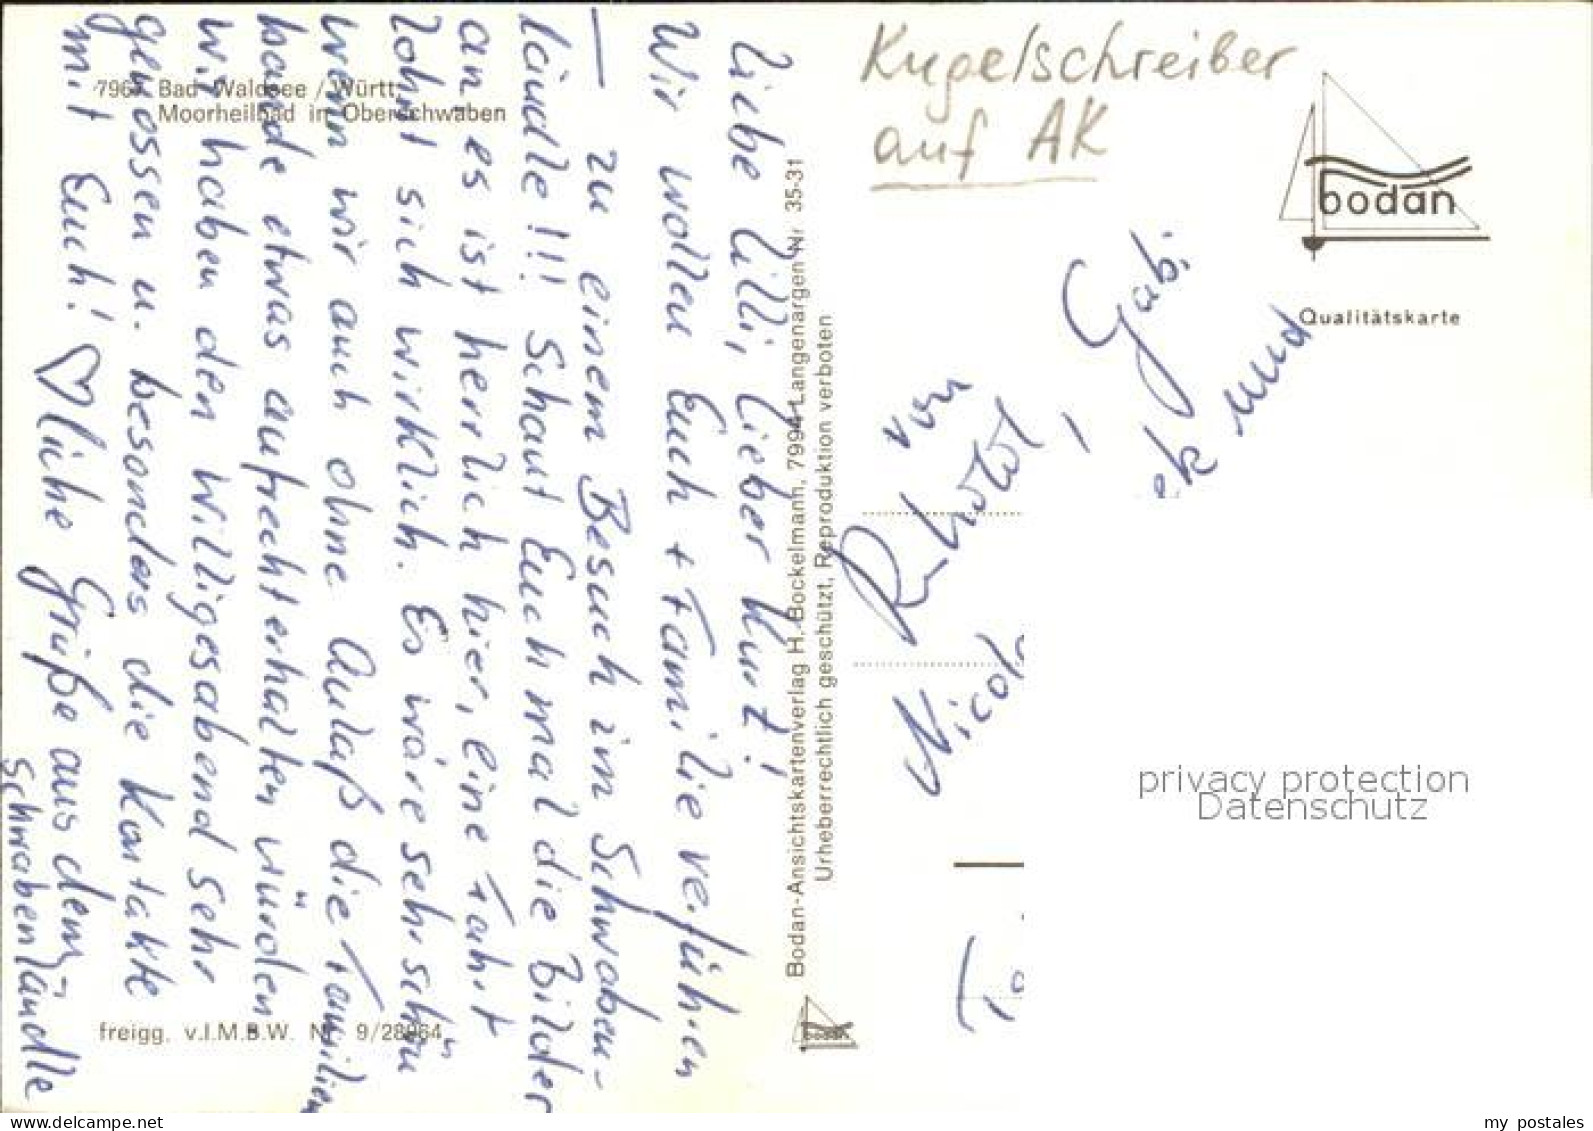 7967 Bad Waldsee / Württ.
Moorheilbad in Oberschwaben
Liebe Lilli, lieber Kurt!
Wir wollen Euch + Familie verführen
— zu einem Besuch im Schwaben-
ländle!!! Schaut Euch mal die Bilder
an es ist herrlich hier, eine Fahrt
lohnt sich wirklich. Es wäre sehr schön
wenn wir auch ohne Anlaß die Familien
bande etwas aufrechterhalten würden
wir haben den Willigesabend sehr
genossen u. besonders die Kontakte
mit Euch! ♡liche Grüße aus dem
Schwabenländle
freigg. v.I.M.B.W. Nr. 9/28964
Bodan-Ansichtskartenverlag H. Bockelmann, 7994 Langenargen Nr. 35-31
Urheberrechtlich geschützt, Reproduktion verboten
Kugelschreiber
auf AK
bodan
Qualitätskarte
von
Gabi
und
privacy protection
Datenschutz
www.ansichtskarten-center.de
my postales